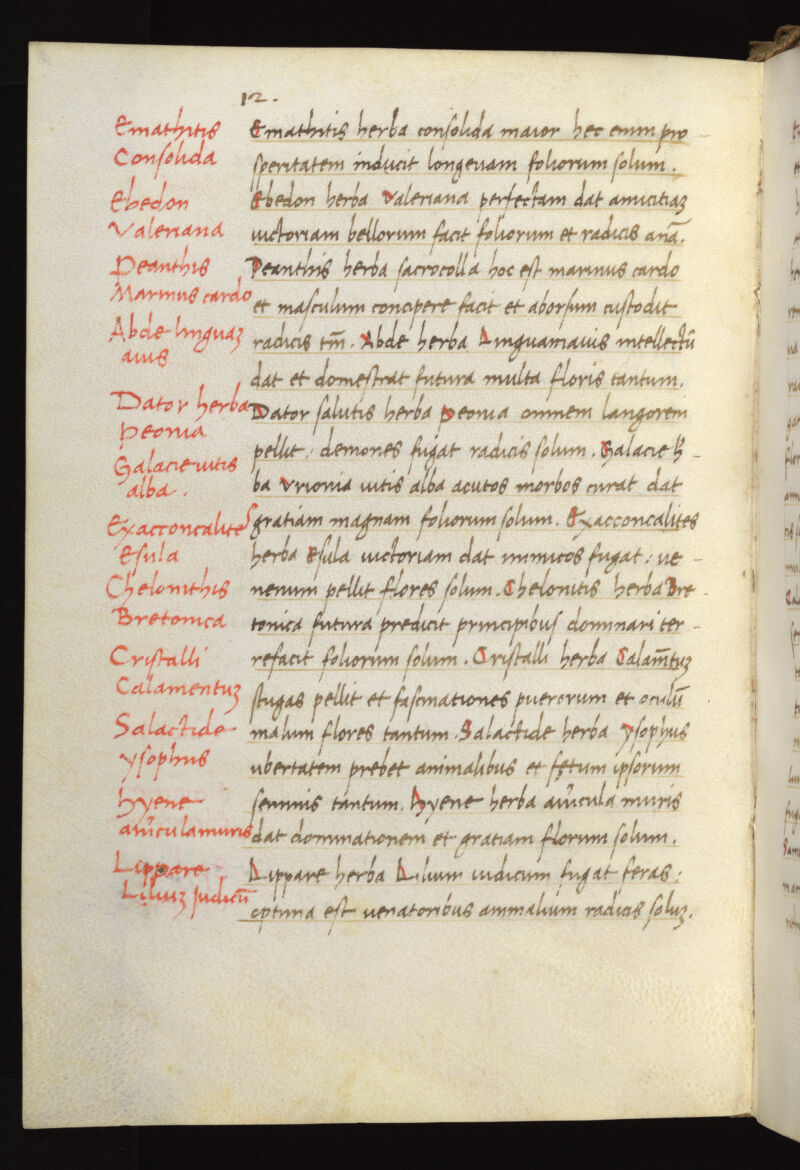 12.
Emathitis
Consolida
Ebedon
Valeriana
Deanthis
Marinus cardo
Abde linguaʒ
auis
Dator herba
peonia
Galacie uitis
alba.
Exacconcalites
Esula
Chelonithis
Bretonica
Cristalli
Calamentuʒ
Salactide
ysophus
hyene
auricula muris
Lippare
Liliuʒ judicū
Emathitis herba consolida maior hec enim pro-
speritatem inducit longeuam foliorum solum.
Ebedon herba Valeriana perfectam dat amicitiaʒ
uictoriam bellorum facit foliorum et radicis anā.
Deanthis herba sacrocolla hoc est marinus cardo
et masculum concipere facit et aborsum custodit
radicis tm̄. Abde herba Linguamauis intellectū
dat et domestrat futura multa floris tantum.
Dator salutis herba peonia omnem langorem
pellit: demones fugat radicis solum. Galacie h̄-
ba Vrionia uitis alba acutos morbos curat dat
gratiam magnam foliorum solum. Exacconcalites
herba Esula uictoriam dat inimicos fugat: ue-
nenum pellit flores solum. Chelonitis herba Bre-
tonica futura predicit principibus dominari ter-
refacit foliorum solum. Cristalli herba Calam̄tuʒ
stugas pellit et fascinationes puerorum et oculū
malum flores tantum. Salactide herba ysophus
ubertatem prebet animalibus et fętum ipsorum
seminis tantum. hyene herba auricula muris
dat dominationem et gratiam florum solum.
Lippare herba Lilium iudicum fugat feras:
optima est uenatoribus animalium radicis soluʒ.